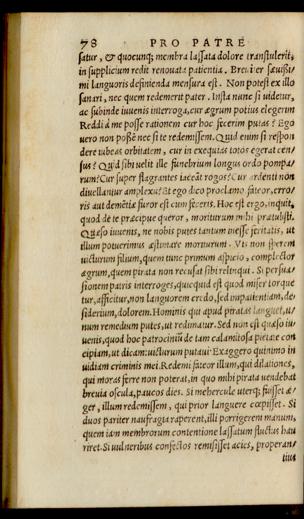 78 PRO PATRE
satur, & quocunq; membra lassata dolore transtulerit,
in supplicium redit renovata patientia. Breviter sævissi/
mi languoris definienda mensura est. Non potest ex illo
sanari, nec quem redemerit pater. Insta nunc si videtur,
ac subinde iuvenis interroga, cur ægrum potius elegerim
Reddi à me posse rationem cur hoc fecerim putas? Ego
vero non possē nec si te redemissem. Quid enim si respon
dere iubeas orbitatem, cur in exequias totos egerat cen/
sus? Quid sibi velit ille funebrium longus ordo pompa/
rum? Cur super flagrantes iaceāt rogos? Cur ardenti non
divellantur amplexu? Et ego dico proclamo, fateor, erro/
ris aut demētiæ furor est cum feceris. Hoc est ergo, inquit,
quod de te præcipue queror, moriturum mihi prætulisti.
Quæso iuvenis, ne nobis putes tantum inesse feritatis, ut
illum potuerimus æstimare moriturum. Vis non sperem
victurum filium, quem tunc primum aspicio, complector
ægrum, quem pirata non recusat sibi relinqui. Si persua/
sionem patris interroges, quicquid est quod miser torque
tur, afficitur, non languorem credo, sed impatientiam, de/
siderium, dolorem. Hominis qui apud piratas languet, u/
num remedium putes, ut redimatur. Sed non est quæso iu/
venis, quod hoc patrocinium de tam calamitosa pietate con
cipiam, ut dicam: victurum putavi. Exaggero quinimo in
vidiam criminis mei. Redemi fateor illum, qui dilationes,
qui moras ferre non poterat, in quo mihi pirata vendebat
brevia oscula, paucos dies. Si mehercule uterq; fuisset æ/
ger, illum redemissem, qui prior languere cœpisset. Si
duos pariter naufragia raperent, illi porrigerem manum,
quem iam membrorum contentione lassatum fluctus hau
riret. Si vulneribus confectos remisisset acies, properan/
tius